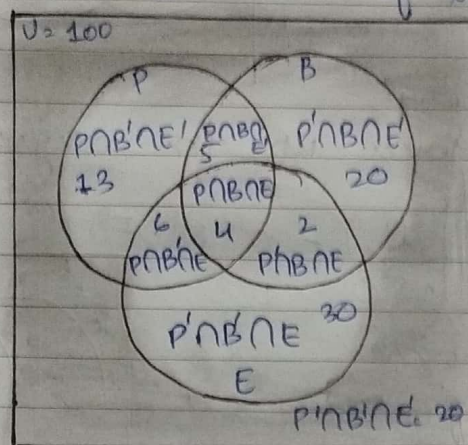 U = 100
P
B
P∩B'∩E'
13
P∩B∩
E'
5
P'∩B∩E'
20
P∩B∩E
4
6
P∩B'∩E
2
P'∩B∩E
P'∩B'∩E
30
E
P'∩B'∩E'. 20